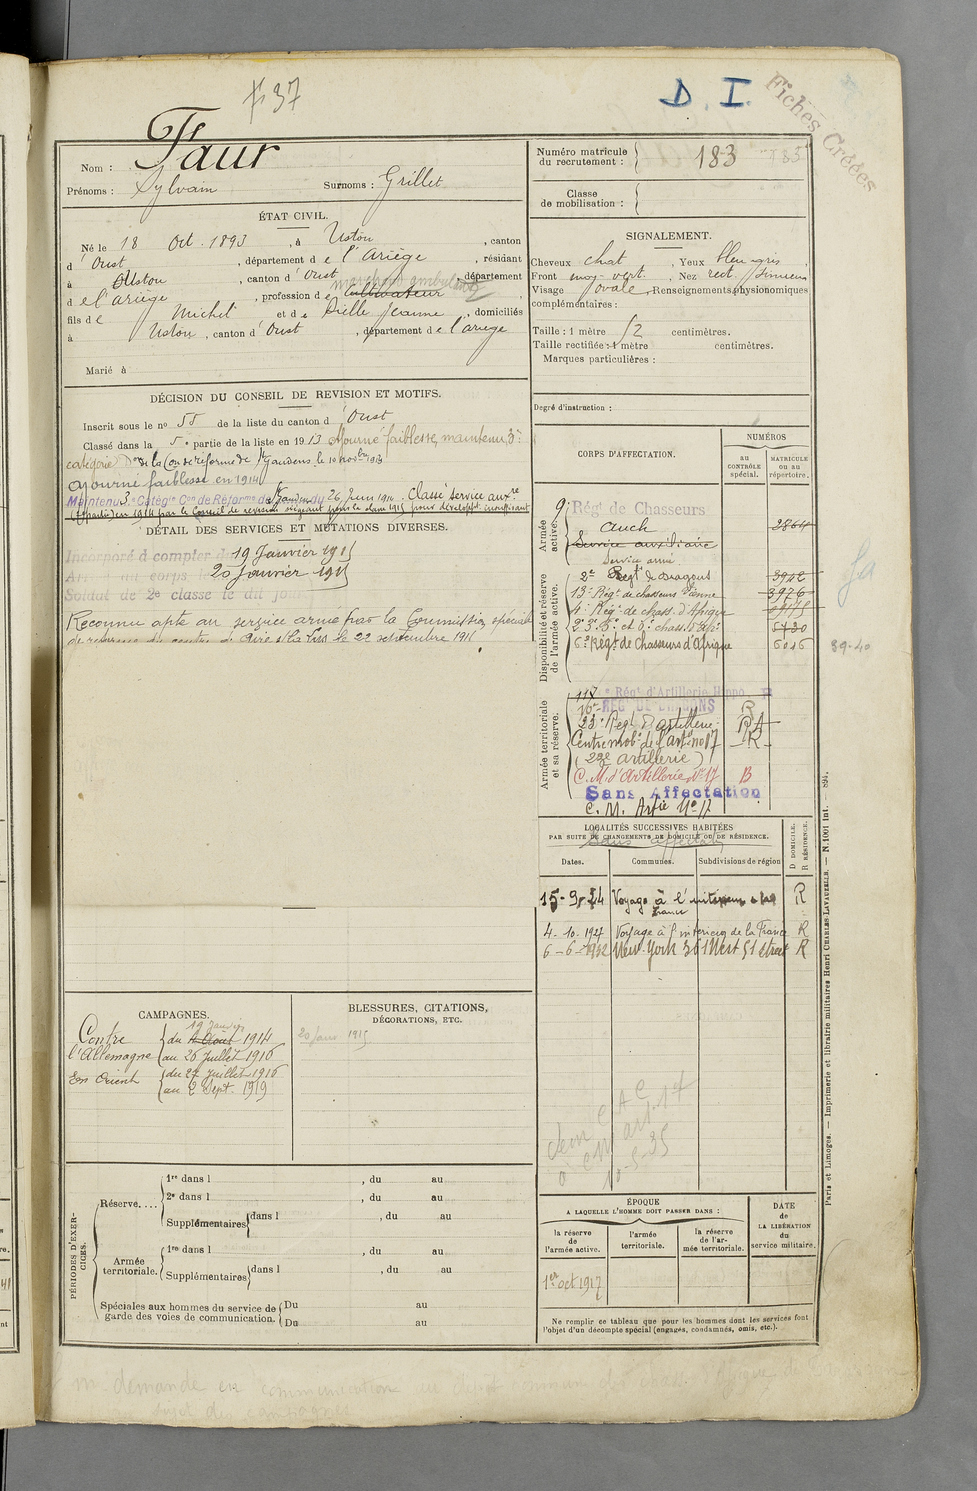 37
D. I.
Fiches Créées
Nom : Faur
Prénoms : Sylvain Surnoms : Grillet
Numéro matricule du recrutement : 183
Classe de mobilisation :
ÉTAT CIVIL.
Né le 18 Oct. 1893, à Ustou, canton
d'Oust, département de l'Ariège, résidant
à Ustou, canton d'Oust, département
de l'ariège, profession de cultivateur marchand ambulant
fils de Michel et de Dielle Jeanne, domiciliés
à Ustou, canton d'Oust, département de l'ariege
Marié à
SIGNALEMENT.
Cheveux chat Yeux bleu gris
Front moy. vert. Nez rect. sinueux
Visage ovale Renseignements physionomiques
complémentaires :
Taille : 1 mètre 52 centimètres.
Taille rectifiée : 1 mètre centimètres.
Marques particulières :
Degré d'instruction :
DÉCISION DU CONSEIL DE REVISION ET MOTIFS.
Inscrit sous le no 55 de la liste du canton d'Oust
Classé dans la 5e partie de la liste en 1913 Ajourné faiblesse, maintenu 3e
catégorie Don de la Con de réforme de St Gaudens le 10 novbre 1913
ajourné faiblesse en 1914
Maintenu 3e Catégie Con de Réforme de St Gaudens du 26 Juin 1914. Classé service auxre
(5e partie) en 1914 par le Conseil de revision siégeant pour la classe 1915 pour développt insuffisant
DÉTAIL DES SERVICES ET MUTATIONS DIVERSES.
Incorporé à compter du 19 Janvier 1915
Arrivé au corps le 20 janvier 1915
Soldat de 2e classe le dit jour
Reconnu apte au service armé par la Commission spéciale
de réforme du centre d'Aire s/la Lys le 22 septembre 1915
CORPS D'AFFECTATION.
NUMÉROS
au CONTRÔLE spécial.
MATRICULE ou au répertoire.
Armée active.
9e Régt de Chasseurs 2864
Auch
Service auxiliaire
Service armé
Disponibilité et réserve de l'armée active.
2e Régt de Dragons 3942
13e Régt de chasseurs Vienne 3976
4e Régt de chass. d'Afrique
2e 3e 5e et 6e chass. d'Af.
6e Régt de Chasseurs d'Afrique 6016
39-40
Armée territoriale et sa réserve.
117e Régt d'Artillerie Hippo
16e RÉGt DE DRAGONS R
23e Regt d'artillerie RA
Centre mob. de l'artie no 17 R
(29e artillerie)
C. M. d'Artillerie No 17 B
Sans Affectation
C. M. Artie No 17
Sans affectation
LOCALITÉS SUCCESSIVES HABITÉES
PAR SUITE DE CHANGEMENTS DE DOMICILE OU DE RÉSIDENCE.
Dates. Communes. Subdivisions de région
D DOMICILE. R RÉSIDENCE.
15-9-24 Voyage à l'intérieur de la France R
4-10-1927 Voyage à l'intérieur de la France R
6-6-1932 New-York 361 West 51 street R
CAMPAGNES.
Contre l'Allemagne
du 4 Août 1914 19 Janvier
au 26 Juillet 1916
En Orient
du 27 Juillet 1916
au 2 Sept. 1919
BLESSURES, CITATIONS,
DÉCORATIONS, ETC.
20 Janv 1915
PÉRIODES D'EXERCICES.
Réserve....
1re dans l , du au
2e dans l , du au
Supplémentaires dans l , du au
Armée territoriale.
1re dans l , du au
Supplémentaires dans l , du au
Spéciales aux hommes du service de garde des voies de communication.
Du au
Du au
10-5-35
ÉPOQUE
A LAQUELLE L'HOMME DOIT PASSER DANS :
la réserve de l'armée active.
l'armée territoriale.
la réserve de l'armée territoriale.
DATE de LA LIBÉRATION du service militaire.
1er oct 1917
Ne remplir ce tableau que pour les hommes dont les services font
l'objet d'un décompte spécial (engagés, condamnés, omis, etc.).
Paris et Limoges. — Imprimerie et librairie militaires Henri CHARLES-LAVAUZELLE. — N. 1001 int. — 894.
demande en communication au dépôt commun des chass. d'Afrique
sujet des campagnes